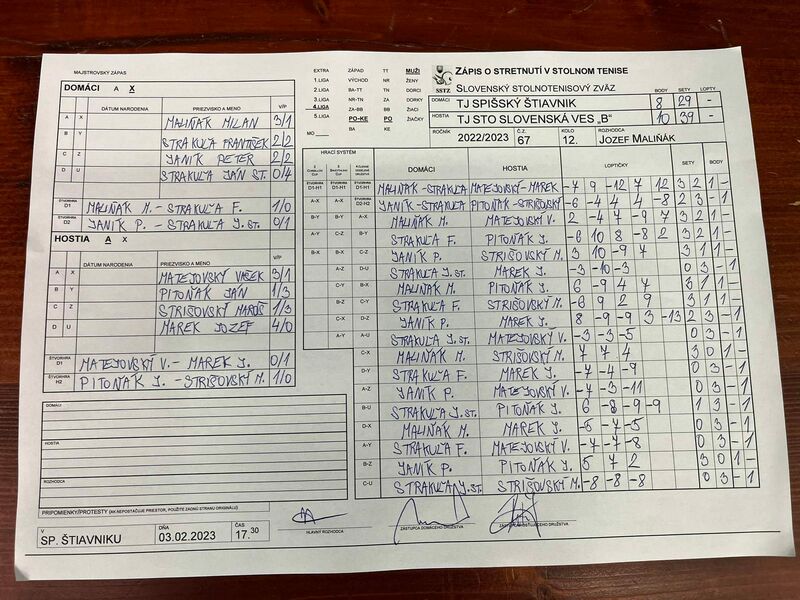 MAJSTROVSKÝ ZÁPAS
DOMÁCI A X
DÁTUM NARODENIA PRIEZVISKO A MENO V/P
A X MALIŇÁK MILAN 3/1
B Y STRAKUĽA FRANTIŠEK 2/2
C Z JANÍK PETER 2/2
D U STRAKUĽA JÁN ST. 0/4
ŠTVORHRA D1 MALIŇÁK M. - STRAKUĽA F. 1/0
ŠTVORHRA D2 JANÍK P. - STRAKUĽA J. ST. 0/1
HOSTIA A X
DÁTUM NARODENIA PRIEZVISKO A MENO V/P
A X MATEJOVSKÝ VAŠEK 3/1
B Y PITOŇÁK JÁN 1/3
C Z STRIŠOVSKÝ MAROŠ 1/3
D U MAREK JOZEF 4/0
ŠTVORHRA D1 MATEJOVSKÝ V. - MAREK J. 0/1
ŠTVORHRA H2 PITOŇÁK J. - STRIŠOVSKÝ M. 1/0
DOMÁCI
HOSTIA
ROZHODCA
PRIPOMIENKY/PROTESTY (AK NEPOSTAČUJE PRIESTOR, POUŽITE ZADNÚ STRANU ORIGINÁLU)
V SP. ŠTIAVNIKU DŇA 03.02.2023 ČAS 17.30
EXTRA ZÁPAD TT MUŽI
1.LIGA VÝCHOD NR ŽENY
2.LIGA BA-TT TN DORCI
3.LIGA NR-TN ZA DORKY
4.LIGA ZA-BB BB ŽIACI
5.LIGA PO-KE PO ŽIAČKY
MO BA KE
SSTZ
ZÁPIS O STRETNUTÍ V STOLNOM TENISE
SLOVENSKÝ STOLNOTENISOVÝ ZVÄZ BODY SETY LOPTY
DOMÁCI TJ SPIŠSKÝ ŠTIAVNIK 8 29 -
HOSTIA TJ STO SLOVENSKÁ VES „B“ 10 39 -
ROČNÍK 2022/2023 Č.Z. 67 KOLO 12. ROZHODCA JOZEF MALIŇÁK
HRACÍ SYSTÉM
DOMÁCI HOSTIA LOPTIČKY SETY BODY
ŠTVORHRA D1-H1 ŠTVORHRA D1-H1 ŠTVORHRA D1-H1 MALIŇÁK - STRAKUĽA MATEJOVSKÝ - MAREK -7 9 -12 7 12 3 2 1 -
A-X A-X ŠTVORHRA D2-H2 JANÍK - STRAKUĽA PITOŇÁK - STRIŠOVSKÝ -6 -4 4 4 -8 2 3 - 1
B-Y B-Y A-X MALIŇÁK M. MATEJOVSKÝ V. 2 -4 -7 -9 7 2 3 - 1
A-Y C-Z B-Y STRAKUĽA F. PITOŇÁK J. -6 10 8 -8 2 3 2 1 -
B-X B-X C-Z JANÍK P. STRIŠOVSKÝ M. 3 10 -9 7 3 1 1 -
A-Z D-U STRAKUĽA J. ST. MAREK J. -3 -10 -3 0 3 - 1
C-Y B-X MALIŇÁK M. PITOŇÁK J. 6 -9 4 7 3 1 1 -
B-Z C-Y STRAKUĽA F. STRIŠOVSKÝ M. -6 9 2 9 3 1 1 -
C-X D-Z JANÍK P. MAREK J. 8 -9 -9 3 -13 2 3 - 1
A-Y A-U STRAKUĽA J. ST. MATEJOVSKÝ V. -3 -3 -5 0 3 - 1
C-X MALIŇÁK M. STRIŠOVSKÝ M. 7 7 4 3 0 1 -
D-Y STRAKUĽA F. MAREK J. -7 -4 -9 0 3 - 1
A-Z JANÍK P. MATEJOVSKÝ V. -7 -3 -11 0 3 - 1
B-U STRAKUĽA J. ST. PITOŇÁK J. 6 -8 -9 -9 1 3 - 1
D-X MALIŇÁK M. MAREK J. -5 -7 -5 0 3 - 1
A-Y STRAKUĽA F. MATEJOVSKÝ V. -7 -7 -8 0 3 - 1
B-Z JANÍK P. PITOŇÁK J. 5 7 2 3 0 1 -
C-U STRAKUĽA J. ST. STRIŠOVSKÝ M. -8 -8 -8 0 3 - 1
HLAVNÝ ROZHODCA ZÁSTUPCA DOMÁCEHO DRUŽSTVA